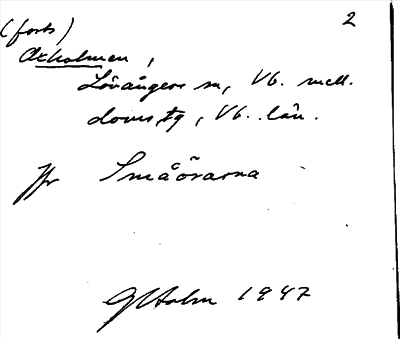 (forts) 2
Oxholmen,
Lövångers sn, Vb. mell.
doms.tg, Vb. län.
Jfr Småörarna
G Holm 1947